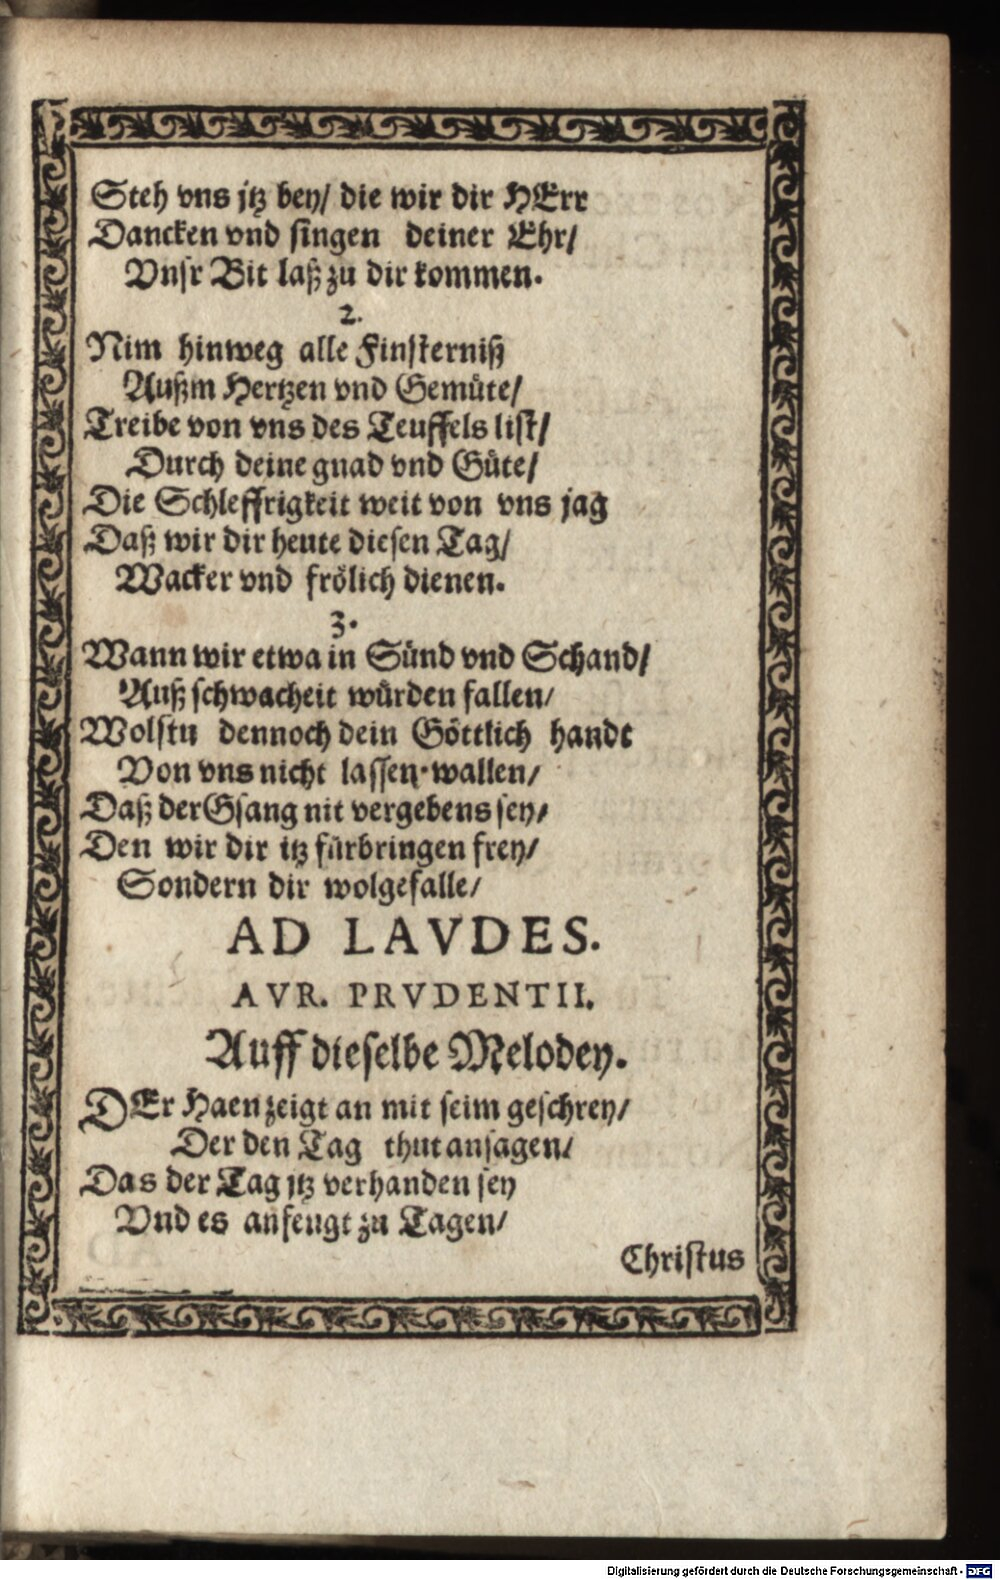 Steh vns jtz bey/ die wir dir HErr
Dancken vnd singen deiner Ehr/
Vnsr Bit laß zu dir kommen.
2.
Nim hinweg alle Finsterniß
Außm Hertzen vnd Gemüte/
Treibe von vns des Teuffels list/
Durch deine gnad vnd Güte/
Die Schleffrigkeit weit von vns jag
Daß wir dir heute diesen Tag/
Wacker vnd frölich dienen.
3.
Wann wir etwa in Sünd vnd Schand/
Auß schwacheit würden fallen/
Wolstu dennoch dein Göttlich handt
Von vns nicht lassen wallen/
Daß der Gsang nit vergebens sey/
Den wir dir itz fürbringen frey/
Sondern dir wolgefalle/
AD LAVDES.
AVR. PRVDENTII.
Auff dieselbe Melodey.
DEr Haen zeigt an mit seim geschrey/
Der den Tag thut ansagen/
Das der Tag jtz verhanden sey
Vnd es anfengt zu Tagen/
Christus
Digitalisierung gefördert durch die Deutsche Forschungsgemeinschaft - DFG